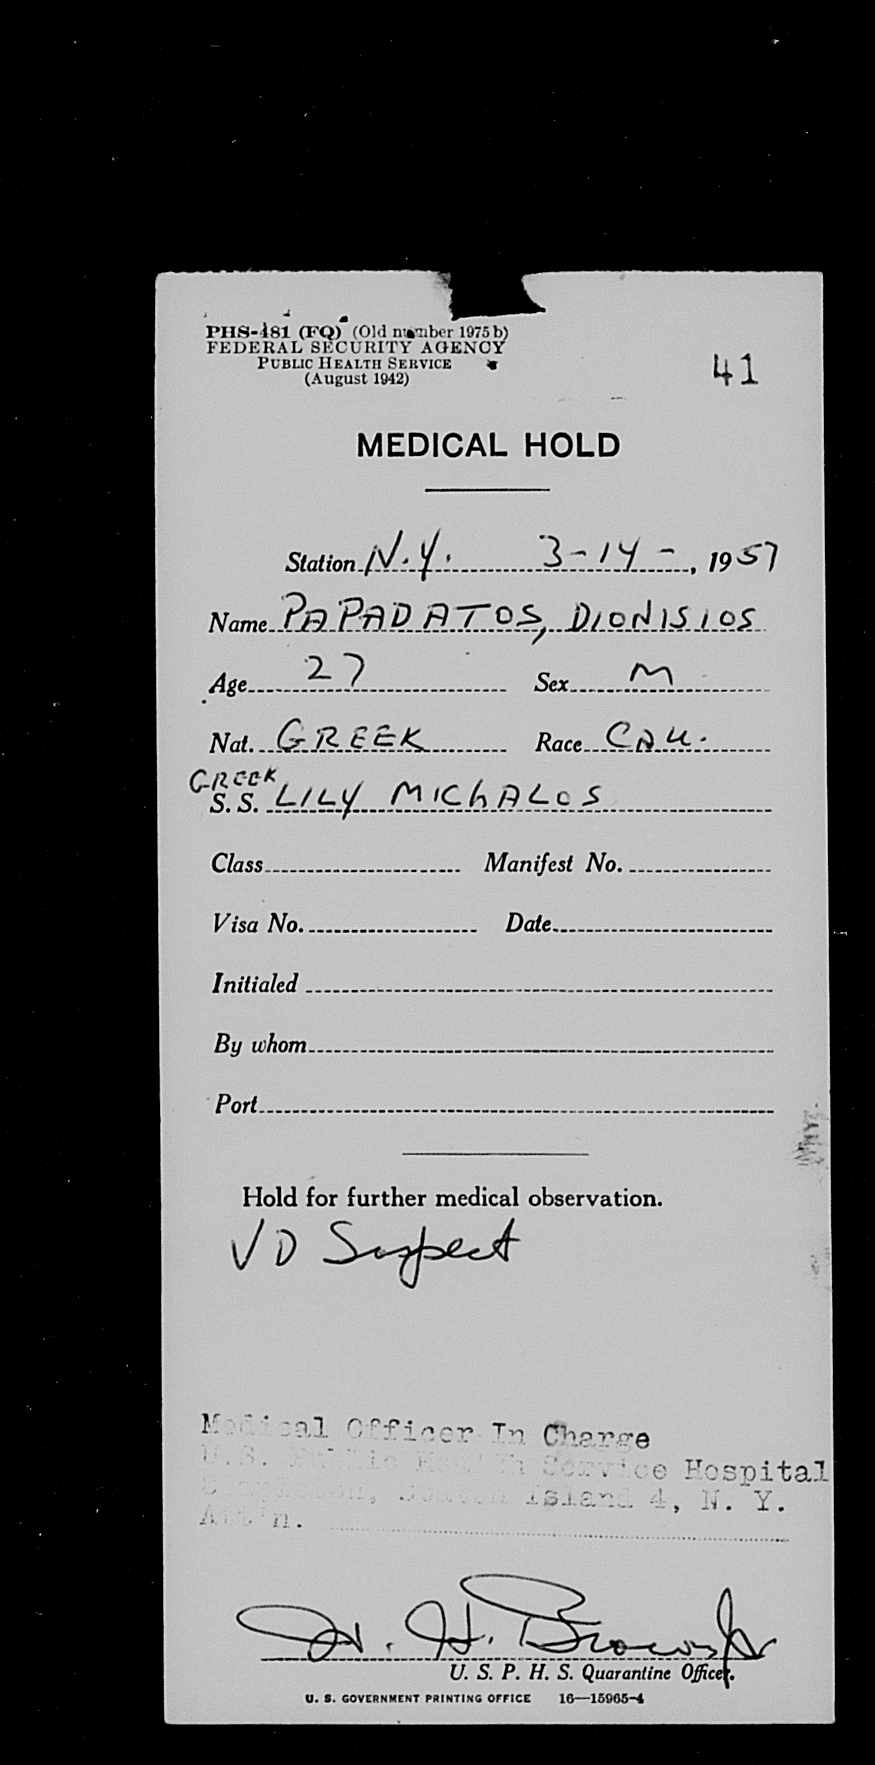 PHS-481 (FQ) (Old number 1975 b)
FEDERAL SECURITY AGENCY
PUBLIC HEALTH SERVICE
(August 1942)
41
MEDICAL HOLD
Station N.Y. 3-14-, 1957
Name PAPADATOS, DIONISIOS
Age 27 Sex M
Nat. GREEK Race CAU.
GREEK
S. S. LILY MICHALOS
Class Manifest No.
Visa No. Date
Initialed
By whom
Port
Hold for further medical observation.
VD Suspect
Medical Officer In Charge
U.S. Public Health Service Hospital
Island 4, N. Y.
Att'n.
H. Brown Jr
U. S. P. H. S. Quarantine Officer.
U. S. GOVERNMENT PRINTING OFFICE 16—15965-4